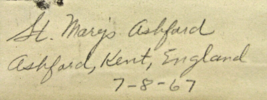 St. Marys Ashford
Ashford, Kent, England
7-8-67